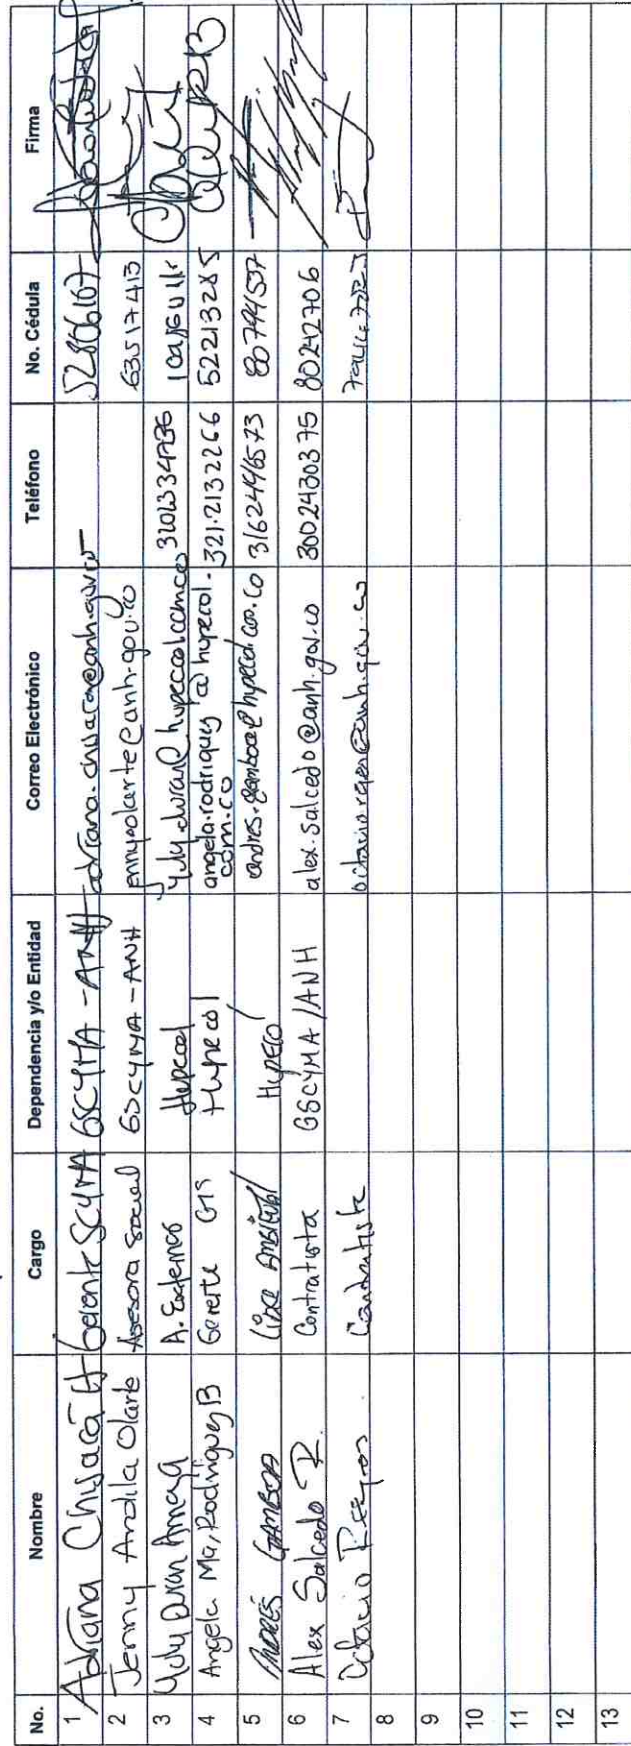 No. Nombre Cargo Dependencia y/o Entidad Correo Electrónico Teléfono No. Cédula Firma
1 Adriana Chisacá H Gerente SCYMA GSCYMA - ANH adriana.chisaca@anh.gov.co 52806167
2 Jenny Ardila Olarte Asesora Social GSCYMA - ANH 63517413
3 Yuly Duran Amaya A. Externos Hupecol
4 Angela Ma. Rodriguez B Gerente GIS Hupecol angela.rodriguez @ hupecol. 321.2132266 52213285
com.co
5 ANDRÉS GAMBOA Líder AMBIENTAL Hupecol andres.gamboa@hupecol.com.co 3162446573 80794537
6 Alex Salcedo R. Contratista GSCYMA/ANH alex.salcedo@anh.gov.co 3002430375 80242706
7 Octavio Contratista
8
9
10
11
12
13